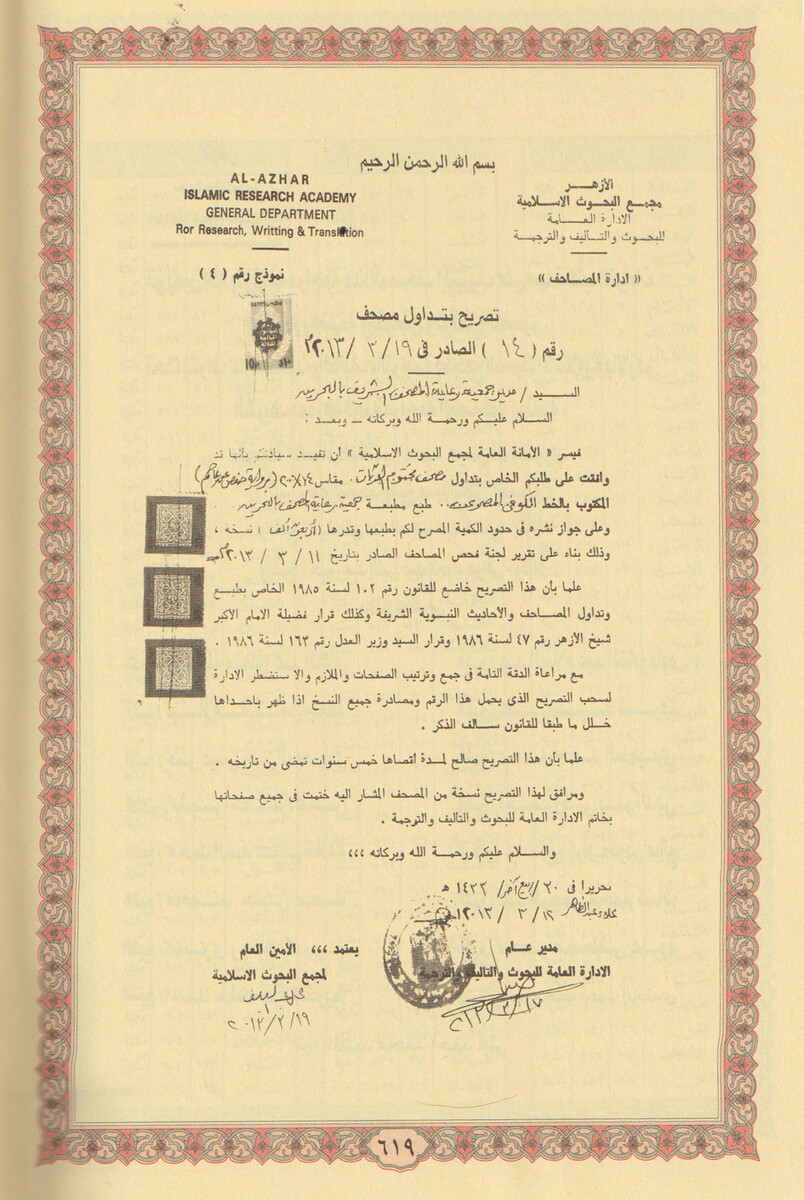 بسم الله الرحمن الرحيم
AL-AZHAR
ISLAMIC RESEARCH ACADEMY
GENERAL DEPARTMENT
Ror Research, Writting & Translation
الأزهــر
مجمع البحوث الاسلامية
الادارة العــامة
للبحوث والتأليف والترجمة
« ادارة المصاحف »
نموذج رقم ( ٤ )
تصريح بتداول مصحف
رقم ( ١٤ ) الصادر فى ١٩ / ٣ / ٢٠١٣م
الســيد / مدير جمعية رعاية المصحف الشريف بالبحرين
السلام عليكم ورحمة الله وبركاته – وبعد :
فيسر « الأمانة العامة لمجمع البحوث الاسلامية » ان تفيد سيادتكم بأنها قد
وافقت على طلبكم الخاص بتداول مصحف مقاس ١٤×٢٠ (برواية حفص عن عاصم)
المكتوب بالخط الكوفى طبع مطبعة جمعية رعاية المصحف بالبحرين
وعلى جواز نشره فى حدود الكمية المصرح لكم بطبعها وقدرها ( ألف ) نسخة ،
وذلك بناء على تقرير لجنة فحص المصاحف الصادر بتاريخ ١١ / ٣ / ٢٠١٣م
علما بأن هذا التصريح خاضع للقانون رقم ١٠٢ لسنة ١٩٨٥ الخاص بطبع
وتداول المصاحف والأحاديث النبوية الشريفة وكذلك قرار فضيلة الامام الأكبر
شيخ الأزهر رقم ٤٧ لسنة ١٩٨٦ وقرار السيد وزير العدل رقم ١٦٣ لسنة ١٩٨٦ .
مع مراعاة الدقة التامة فى جمع وترتيب الصفحات والملازم والا ستضطر الادارة
لسحب التصريح الذى يحمل هذا الرقم ومصادرة جميع النسخ اذا ظهر باحداها
خلل ما طبقا للقانون سالف الذكر .
علما بأن هذا التصريح صالح لمدة أقصاها خمس سنوات تمضى من تاريخه .
ومرافق لهذا التصريح نسخة من المصحف المشار اليه ختمت فى جميع صفحاتها
بخاتم الادارة العامة للبحوث والتاليف والترجمة .
والسلام عليكم ورحمة الله وبركاته ،،،
تحريرا فى ٢٠ / ربيع آخر / ١٤٣٢ هـ
١٩ / ٣ / ٢٠١٣
مدير عــام
الادارة العامة للبحوث والتاليف والترجمة
يعتمد ،،، الأمين العام
لمجمع البحوث الاسلامية
٢٠١٣/٣/١٧
٢٠١٣/٣/١٩
٦١٩